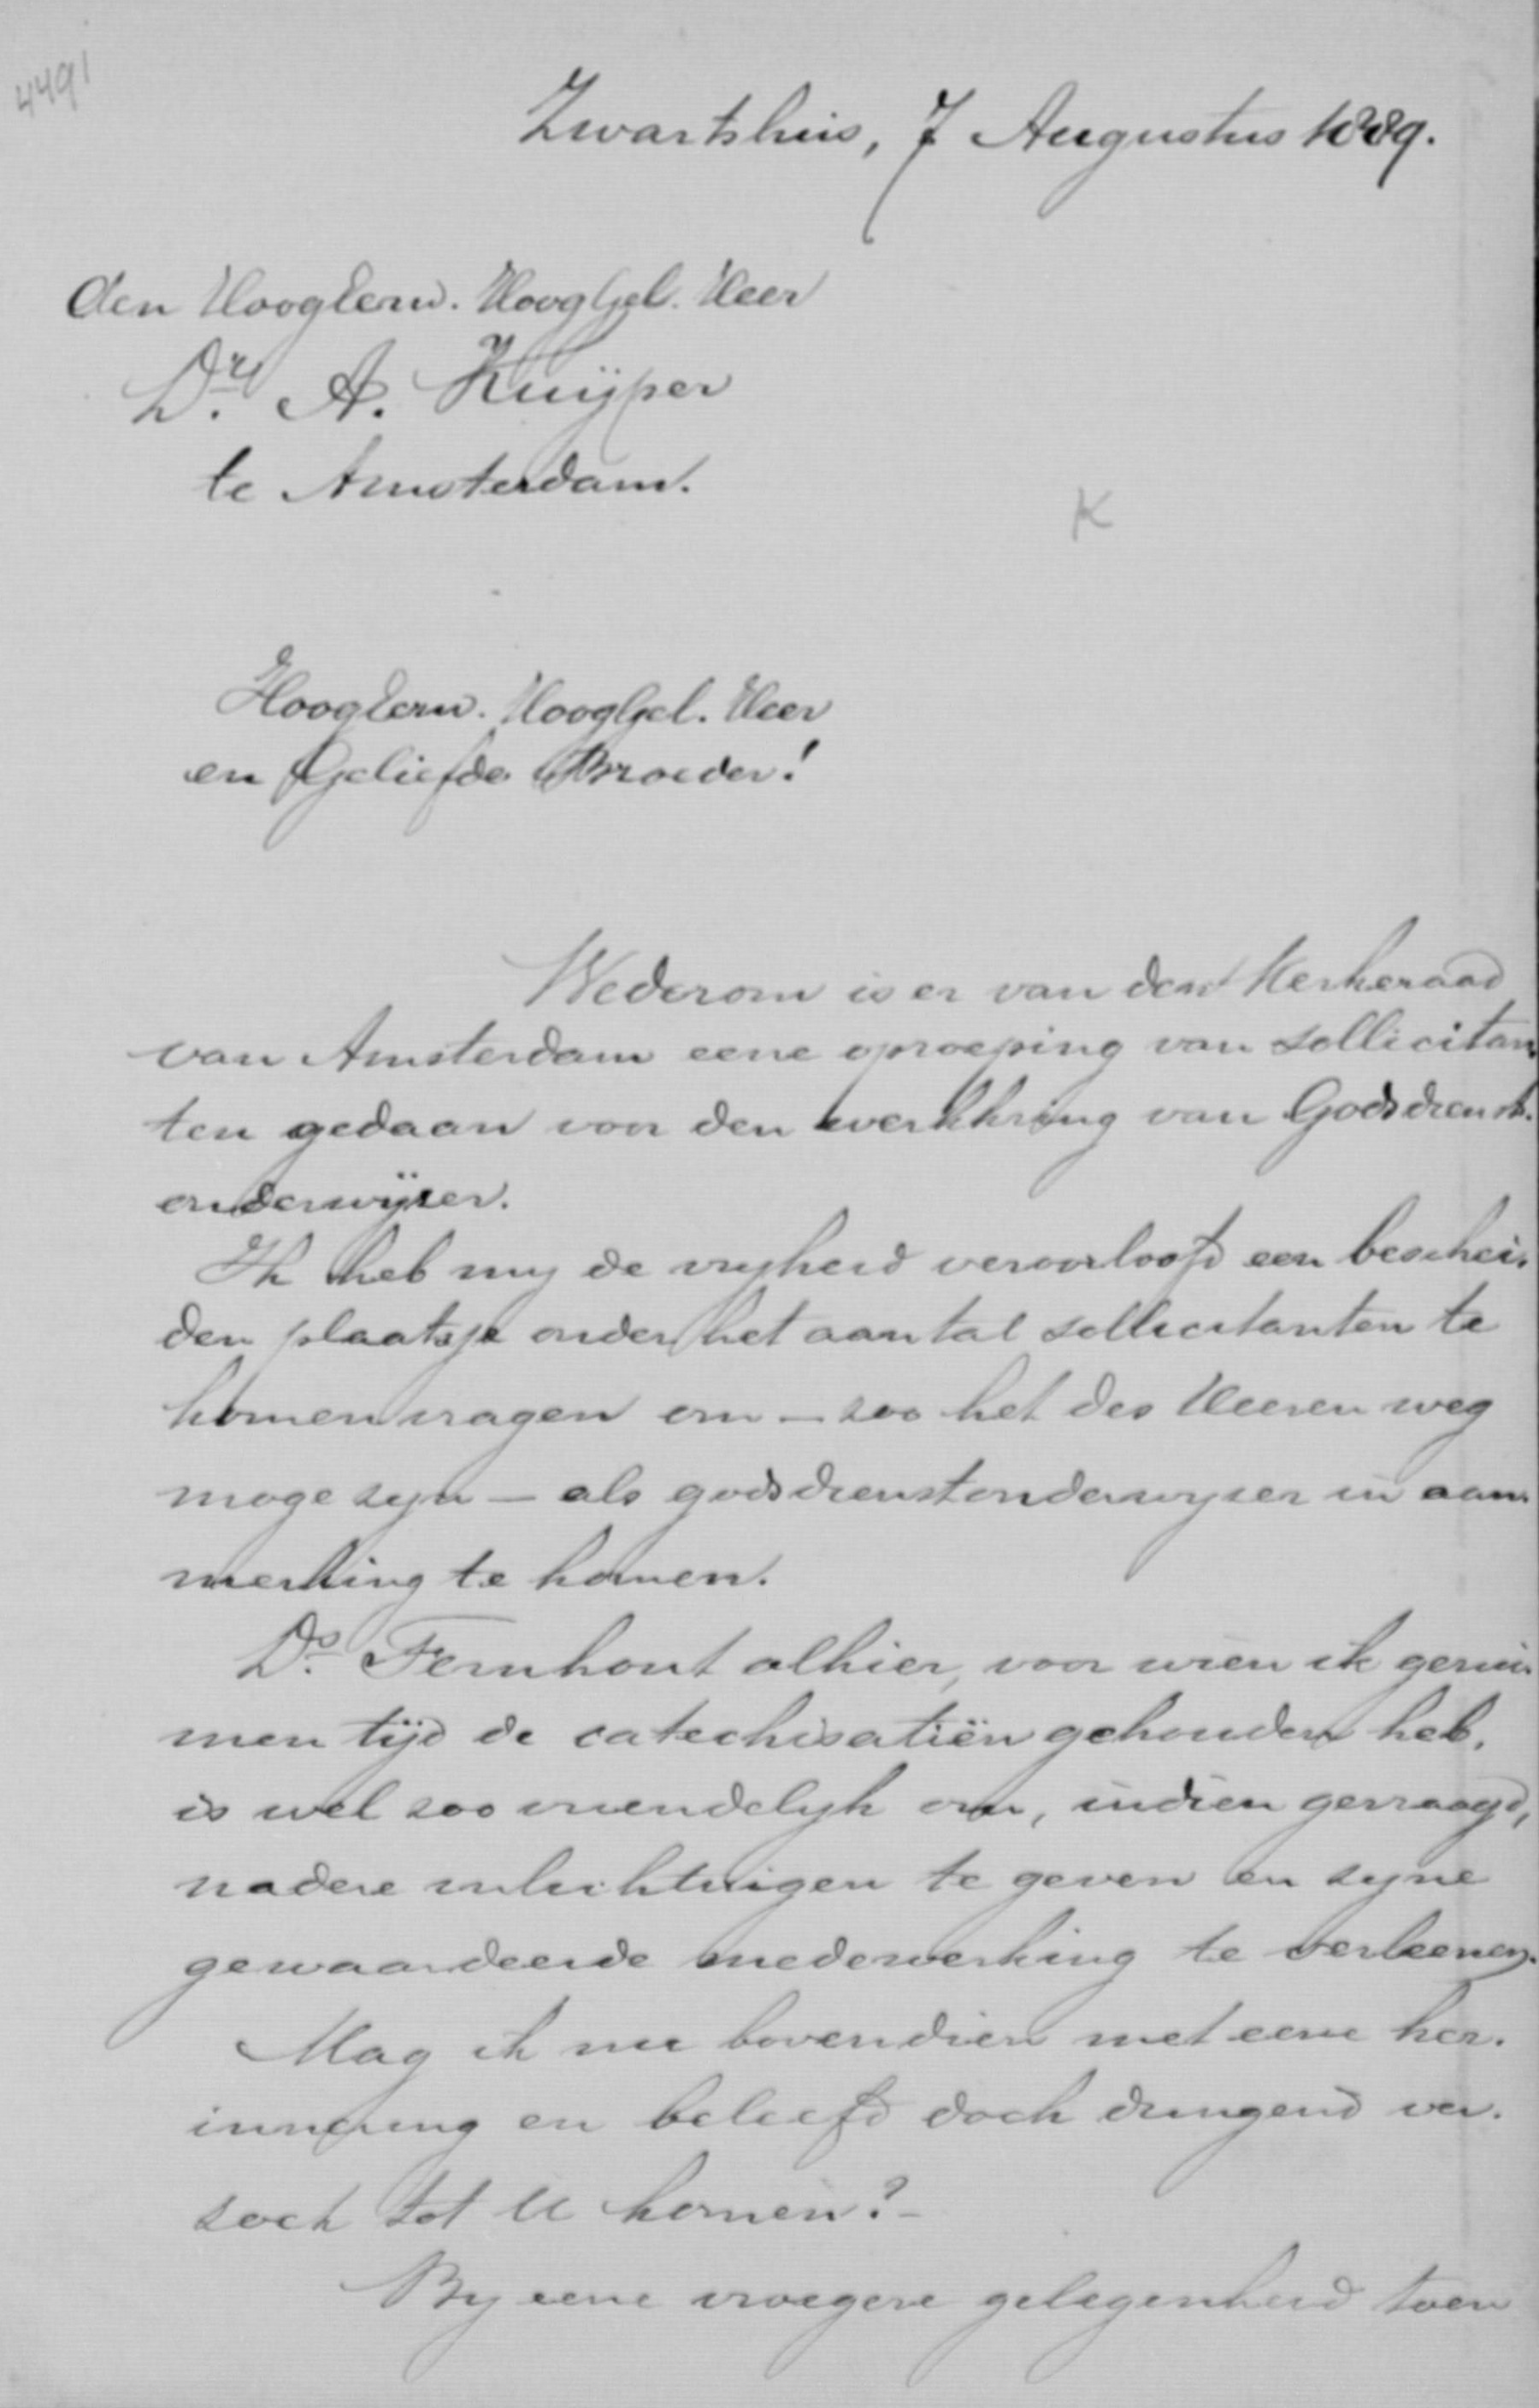 4491
Zwartsluis, 7 Augustus 1889.
den HoogEerw. HoogGel. Heer
Dr. A. Kuijper
te Amsterdam.
K
HoogEerw. HoogGel. Heer
en Geliefde Broeder!
Wederom is er van den Kerkeraad
van Amsterdam eene oproeping van sollicitan-
ten gedaan voor den werkkring van Godsdienst-
onderwijzer.
Ik heb my de vryheid veroorloofd een beschei-
den plaatsje onder het aantal sollicitanten te
komen vragen om — zoo het des Heeren weg
moge zyn — als godsdienstonderwyzer in aan-
merking te komen.
Ds. Fernhout alhier, voor wien ik gerui-
men tijd de catechisatiën gehouden heb,
is wel zoo vriendelyk om, indien gevraagd,
nadere inlichtingen te geven en zyne
gewaardeerde medewerking te verleenen.
Mag ik nu bovendien met eene her-
innering en beleefd doch dringend ver-
zoek tot U komen? -
By eene vroegere gelegenheid toen